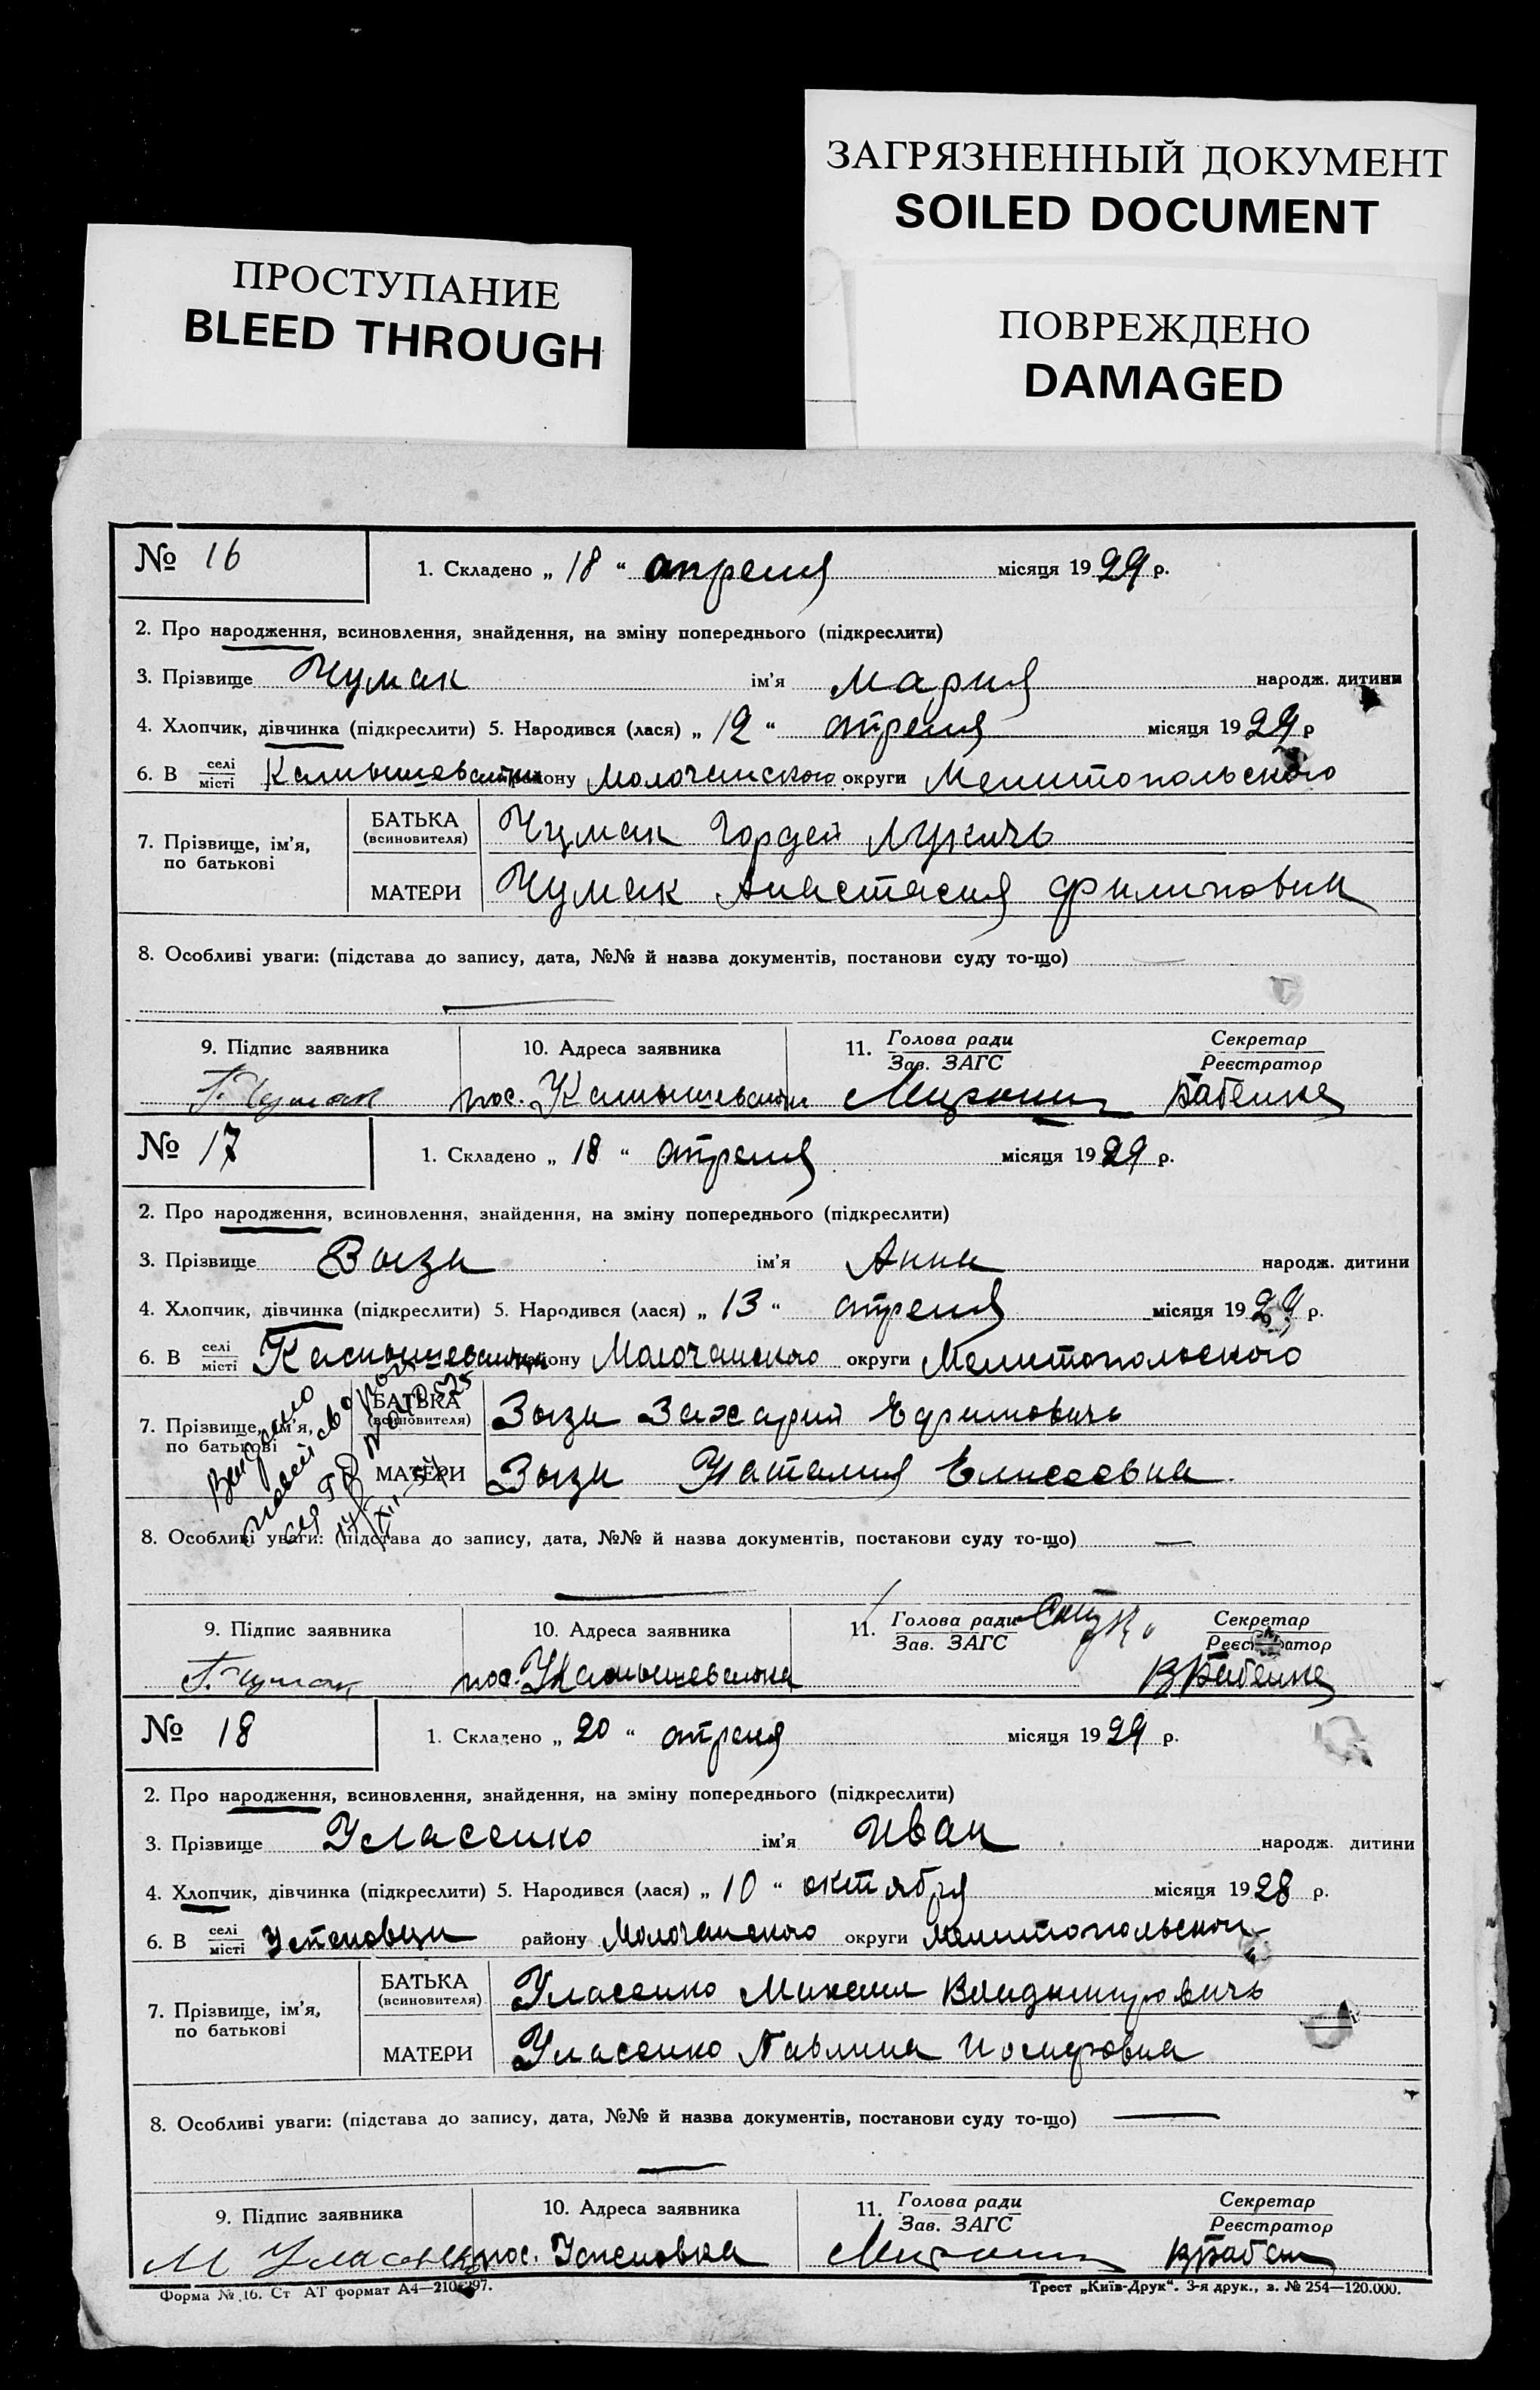 ЗАГРЯЗНЕННЫЙ ДОКУМЕНТ
SOILED DOCUMENT
ПРОСТУПАНИЕ
BLEED THROUGH
ПОВРЕЖДЕНО
DAMAGED
№ 16
1. Складено „ 18 “ апреля місяця 1929 р.
2. Про народження, всиновлення, знайдення, на зміну попереднього (підкреслити)
3. Прізвище Чумак ім'я Мария народж. дитини
4. Хлопчик, дівчинка (підкреслити) 5. Народився (лася) „ 12 “ апреля місяця 1929 р
6. В селі місті Камышеватки району Молочанского округи Мелитопольского
7. Прізвище, ім'я, по батькові
БАТЬКА (всиновителя) Чумак Гордей Лукичь
МАТЕРИ Чумак Анастасия Филиповна
8. Особливі уваги: (підстава до запису, дата, №№ й назва документів, постанови суду то-що) —
9. Підпис заявника 10. Адреса заявника 11. Голова ради Зав. ЗАГС Секретар Реєстратор
Г. Чумак пос. Камышеватки Бабенко
№ 17
1. Складено „ 18 “ апреля місяця 1929 р.
2. Про народження, всиновлення, знайдення, на зміну попереднього (підкреслити)
3. Прізвище Зызи ім'я Анна народж. дитини
4. Хлопчик, дівчинка (підкреслити) 5. Народився (лася) „ 13 “ апреля місяця 1929 р.
6. В селі місті Камышеватки району Молочанского округи Мелитопольского
7. Прізвище, ім'я, по батькові
БАТЬКА (всиновителя) Зызи Захарий Ефимовичь
МАТЕРИ Зызи Наталия Елисеевна
8. Особливі уваги: (підстава до запису, дата, №№ й назва документів, постанови суду то-що) —
9. Підпис заявника 10. Адреса заявника 11. Голова ради Зав. ЗАГС Секретар Реєстратор
Г. Чумак пос. Камышеватка В Бабенко
№ 18
1. Складено „ 20 “ апреля місяця 1929 р.
2. Про народження, всиновлення, знайдення, на зміну попереднього (підкреслити)
3. Прізвище Уласенко ім'я Иван народж. дитини
4. Хлопчик, дівчинка (підкреслити) 5. Народився (лася) „ 10 “ октября місяця 1928 р.
6. В селі місті району Молочанского округи Мелитопольской
7. Прізвище, ім'я, по батькові
БАТЬКА (всиновителя) Уласенко Михаил Владимировичь
МАТЕРИ Уласенко Павлина Иосифовна
8. Особливі уваги: (підстава до запису, дата, №№ й назва документів, постанови суду то-що) —
9. Підпис заявника 10. Адреса заявника 11. Голова ради Зав. ЗАГС Секретар Реєстратор
М Уласенко пос. Успеновка
Форма № 16. Ст АТ формат А4—210×297.
Трест „Київ-Друк“. 3-я друк., з. № 254—120.000.